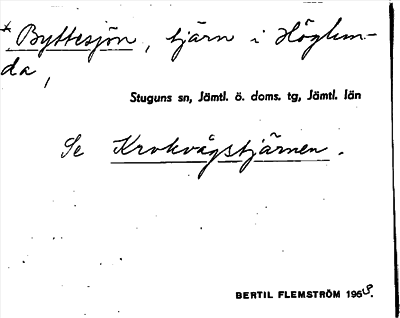 * Byttesjön, tjärn i Höglun-
da,
Stuguns sn, Jämtl. ö. doms. tg, Jämtl. län
Se Krokvågstjärnen.
BERTIL FLEMSTRÖM 1969.